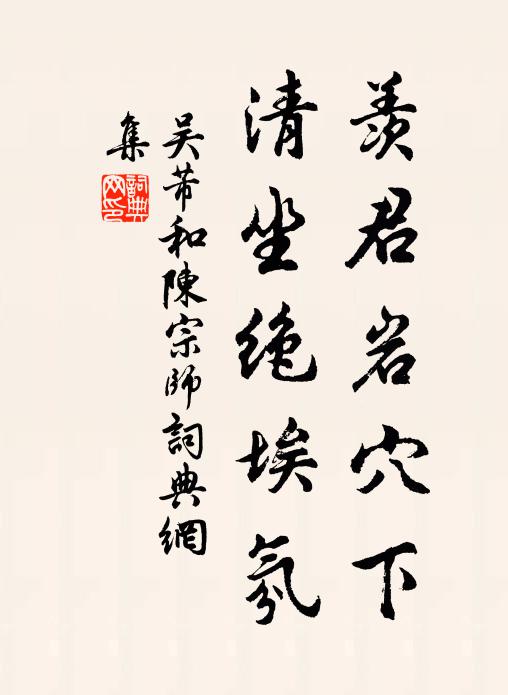 羨君岩穴下
清坐绝埃氛
吴芾和陳宗師詞典網
集
詞典網印